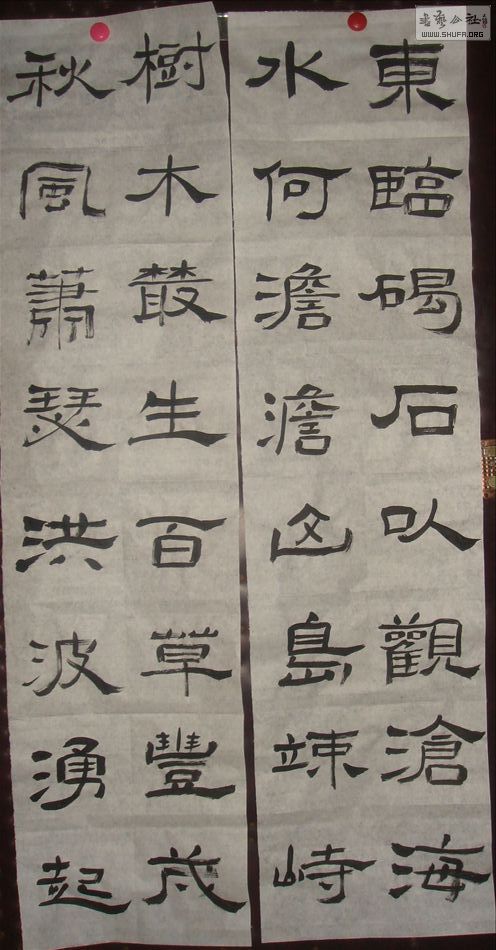 東臨碣石以觀滄海
水何澹澹山島竦峙
樹木叢生百草豐茂
秋風蕭瑟洪波湧起
书艺公社
WWW.SHUFA.ORG